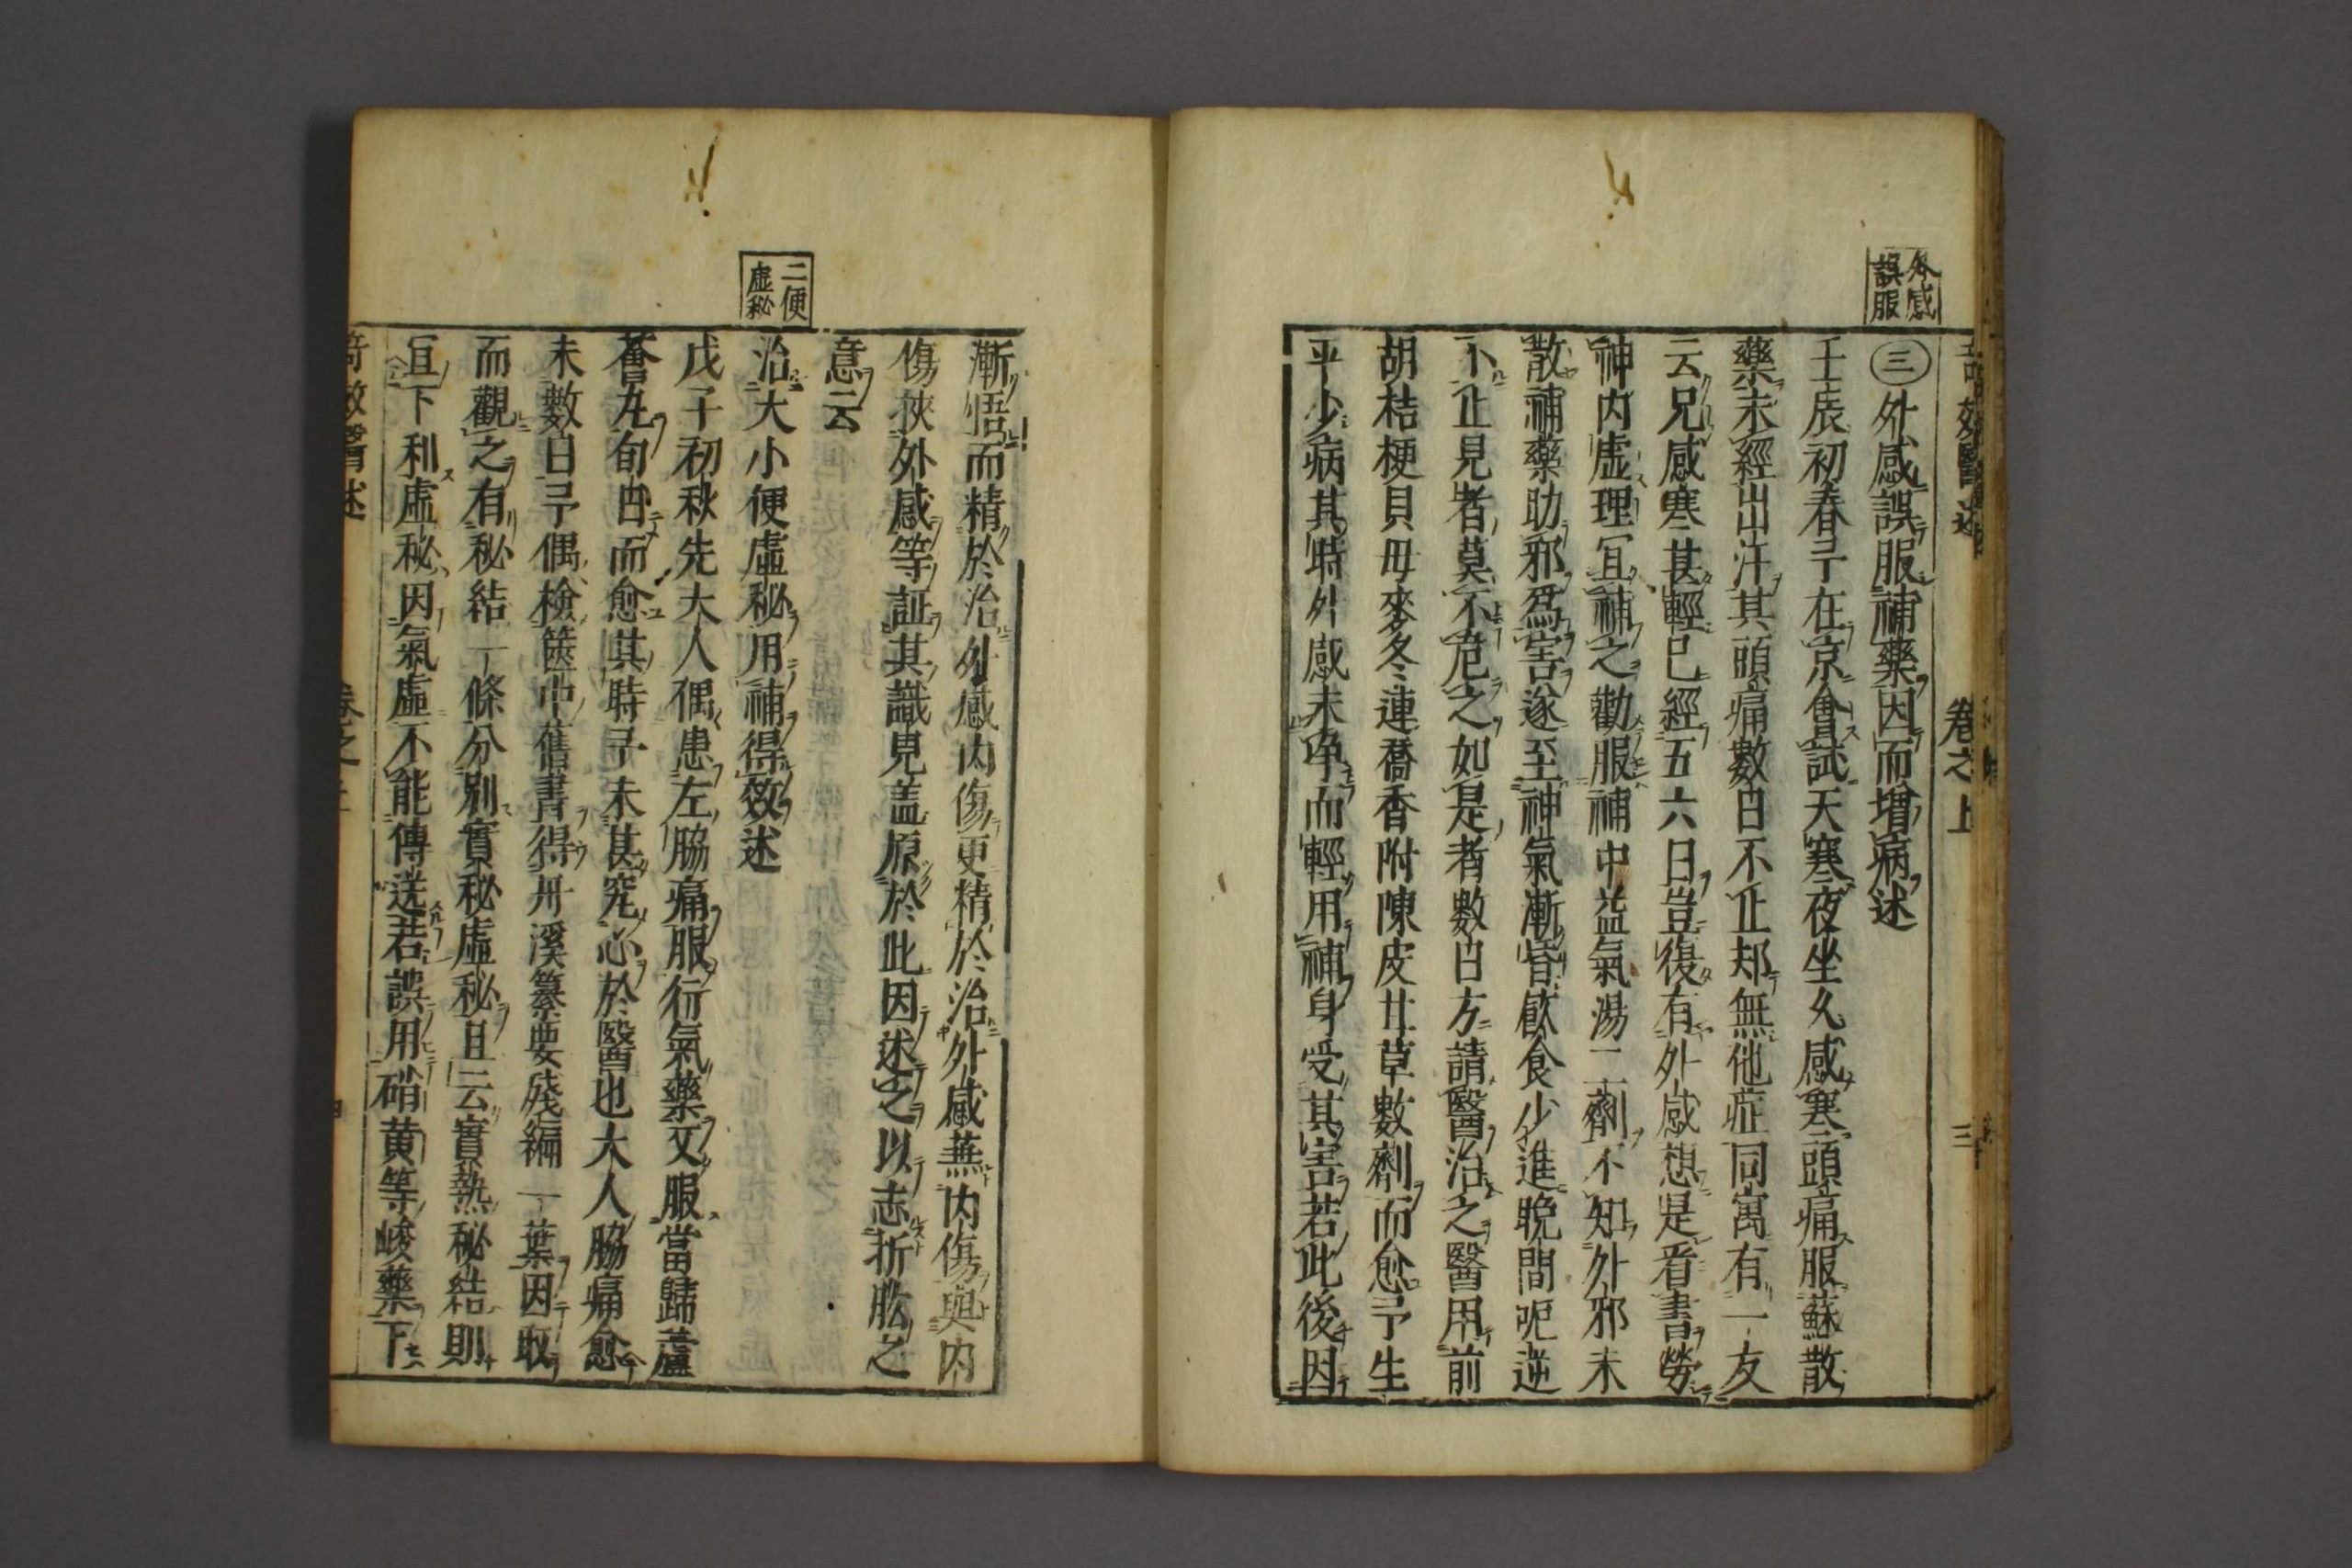 外感
誤服
竒效醫述
卷之上
三
㊂外感誤服補藥因而增病述
壬辰初春予在京會試天寒夜坐久感寒頭痛服蘇散
藥未經出汗其頭痛數日不止却無他症同寓有一友
云兄感寒甚輕已經五六日豈復有外感想是看書勞
神内虚理宜補之勸服補中益氣湯二劑不知外邪未
散補藥助邪爲害遂至神氣漸昏飲食少進晚間呃逆
不止見者莫不危之如是者數日方請醫治之醫用前
胡桔梗貝母麥冬連喬香附陳皮甘草數劑而愈予生
平少病其時外感未凈而輕用補身受其害若此後因
漸悟而精於治外感内傷更精於治外感蕪内傷與内
傷挾外感等証其識見盖原於此因述之以志折肱之
意云
二便
虚秘
治大小便虛秘用補得效述
戊子初秋先大人偶患左脇痛服行氣藥又服當歸蘆
薈九旬日而愈其時予未甚究心於醫也大人脇痛愈
未數日予偶檢篋中舊書得丹溪纂要殘編一葉因取
而觀之有秘結一條分別實秘虛秘且云實熱秘結則
宜下利虛秘因氣虛不能傳送若誤用硝黄等峻藥下
竒效醫述
卷之上
四